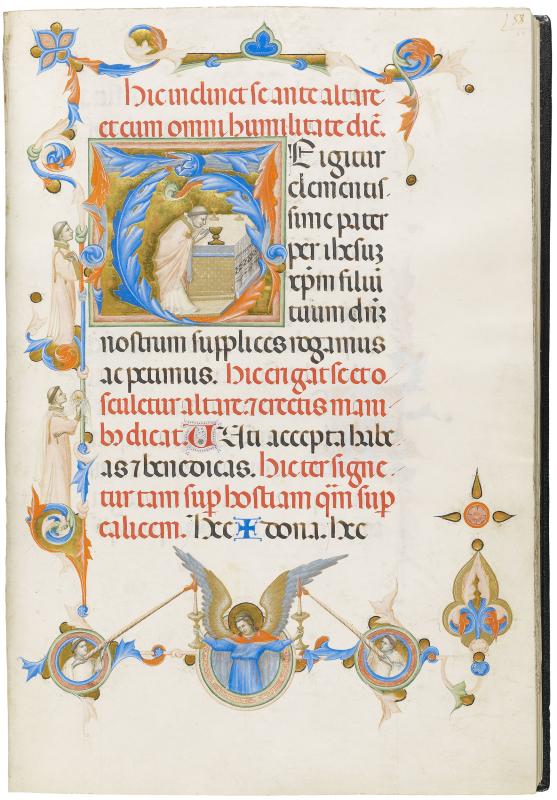 58
hic inclinet se ante altare
et cum omni humilitate dic̄.
TE igitur
clementis
sime pater
per ihesuȝ
xp̄m filiū
tuum dn̄ȝ
nostrum supplices rogamus
ac petimus. hic erigat se et o
sculetur altare. ⁊ erectis mani
bꝫ dicat. Uti accepta habe
as ⁊ benedicas. hic ter signe
tur tam sup̱ hostiam qm̄ sup̱
calicem. hec ✠ dona. hec